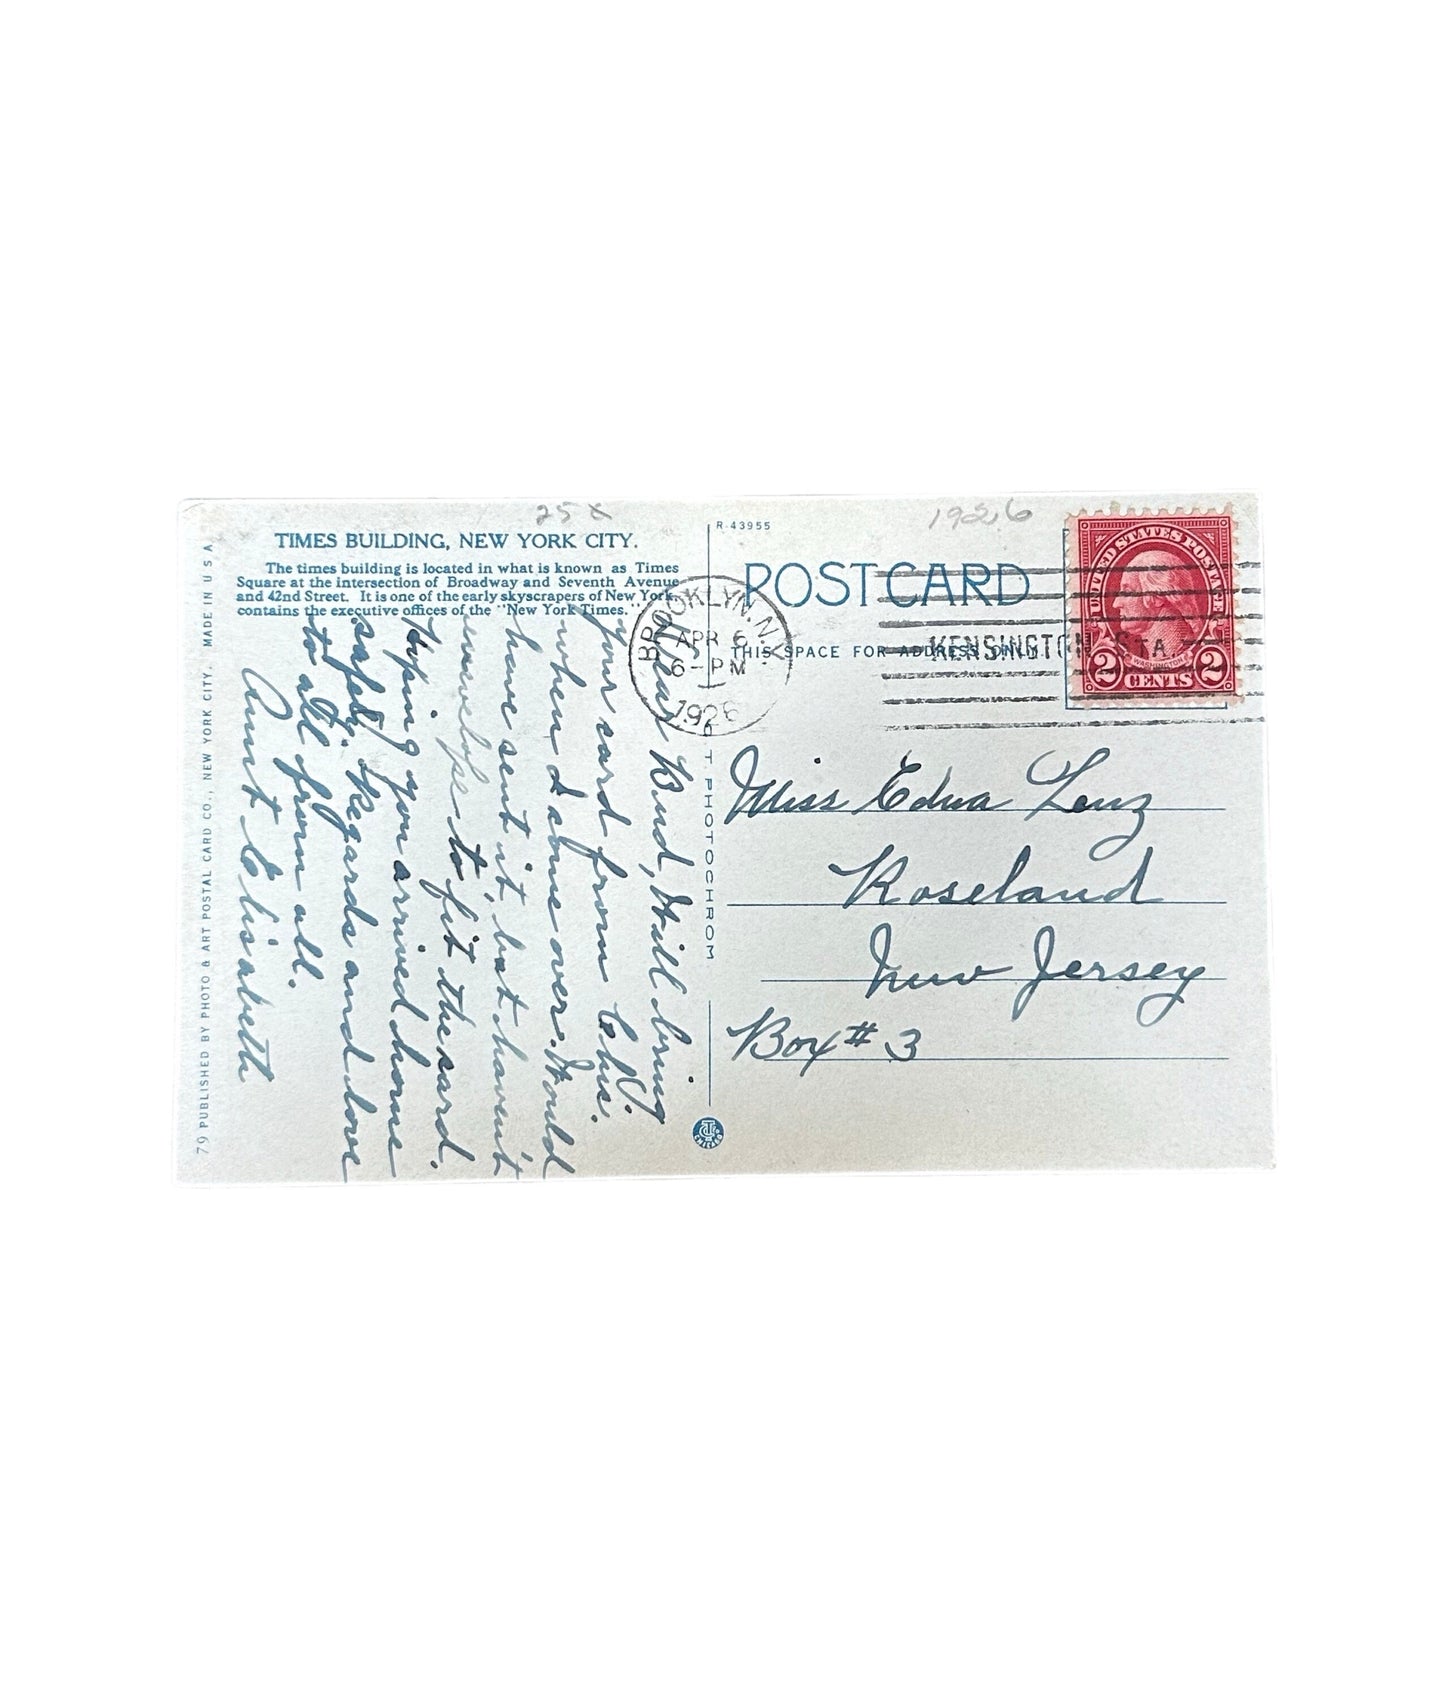 25 x
1926
R-43955
TIMES BUILDING, NEW YORK CITY.
The times building is located in what is known as Times
Square at the intersection of Broadway and Seventh Avenue
and 42nd Street. It is one of the early skyscrapers of New York,
contains the executive offices of the "New York Times."
Dear Kind, Will bring
your card from Chas.
when I come over. Would
have sent it, but haven't
envelope to fit the card.
Hoping you arrived home
safely. Regards and love
to all from all.
Aunt Elisabeth
79 PUBLISHED BY PHOTO & ART POSTAL CARD CO., NEW YORK CITY. MADE IN U S A
C. T. PHOTOCHROM
CHICAGO
POST CARD
THIS SPACE FOR ADDRESS ONLY
BROOKLYN, N.Y.
APR 6
6-PM
1926
KENSINGTON STA.
UNITED STATES POSTAGE
WASHINGTON
2 CENTS 2
Miss Edna Lenz
Roseland
New Jersey
Box # 3